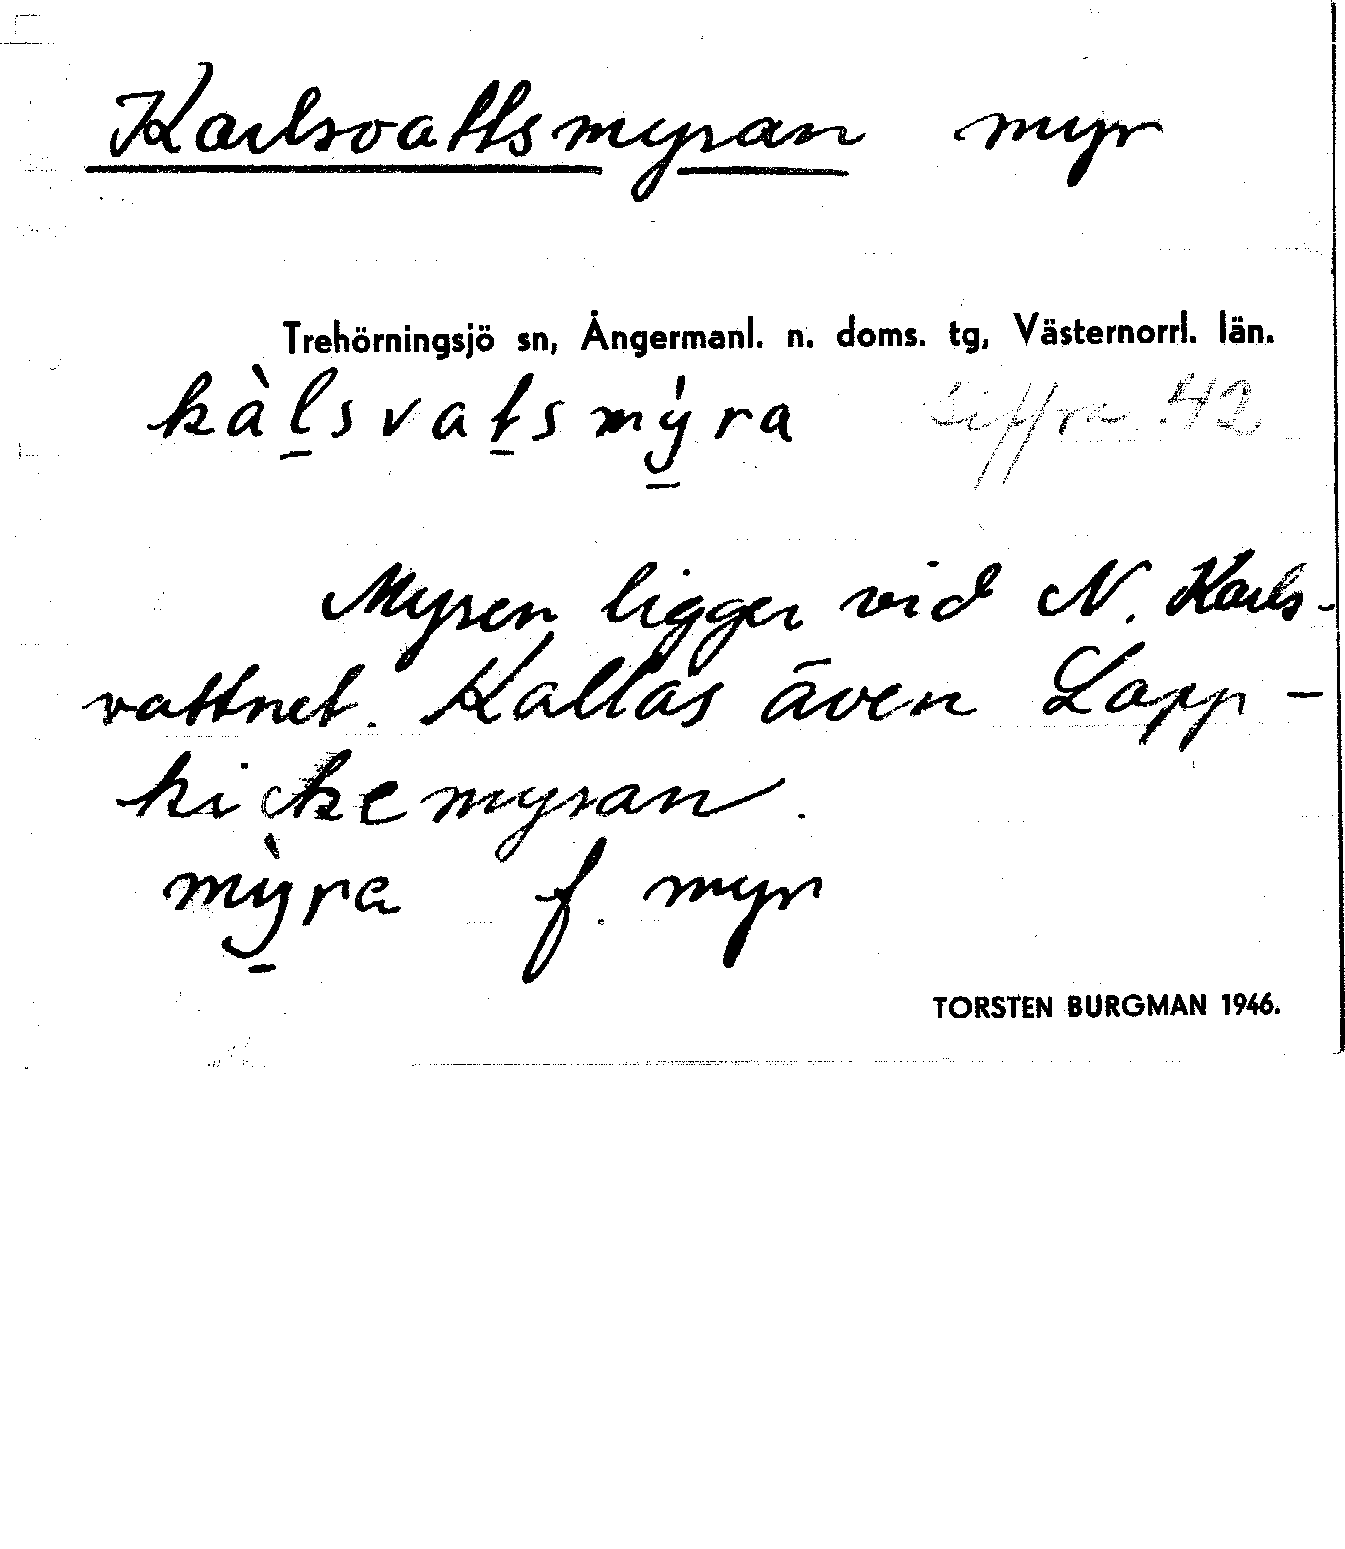 Karlsvattsmyran myr
Trehörningsjö sn, Ångermanl. n. doms. tg, Västernorrl. län.
kàl̠svat̠smý̠ra Siffra 42
Myren ligger vid N. Karls-
vattnet. Kallas även Lapp-
kickemyran.
mỳ̠ra f. myr
TORSTEN BURGMAN 1946.